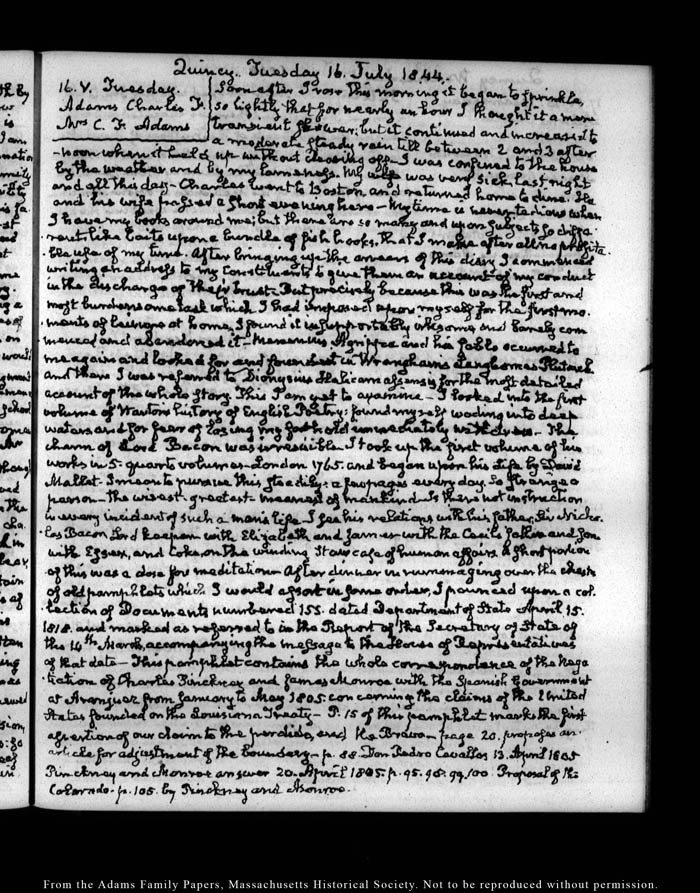 Quincy. Tuesday 16. July 1844.
16. V. Tuesday.
Adams Charles F.
Mrs C. F. Adams
Soon after I rose this morning it began to sprinkle,
so lightly that for nearly an hour I thought it a mere
transient shower; but it continued and increased to
a moderate steady rain till between 2 and 3 after
-noon when it held up without clearing off- I was confined to the house
by the weather and by my lameness. My wife was very sick last night
and all this day- Charles went to Boston, and returned home to dine. He
and his wife passed a short evening here- My time is never tedious when
I have my books around me; but there are so many and upon subjects so diffe-
rent like baits upon a bundle of fish hooks, that I make after all no profita-
ble use of my time. After bringing up the arrears of this diary I commenced
writing an address to my Constituents to give them an account of my conduct
in the discharge of their trust- But precisely because this was the first and
most burdensome task which I had imposed upon myself for the first mo-
ments of leisure at home, I found it insupportably irksome and barely com
menced and abandoned it- Menenius Agrippa and his fable occurred to
me again and looked for and found it in Wrangham's Langhornes Plutarch
and there I was referred to Dionysius Halicarnassensis for the most detailed
account of the whole story. This I am yet to examine- I looked into the first
volume of Warton's history of English Poetry; found myself wading into deep
waters and for fear of losing my foothold immediately withdrew- The
charm of Lord Bacon was irresistible. I took up the first volume of his
works in 5. quarto volumes- London 1765. and began upon his Life by David
Mallet. I mean to pursue this steadily: a few pages every day. So strange a
person- the wisest- greatest- meanest of mankind. Is there not instruction
in every incident of such a man's life- I see his relations with his father, Sir Nicho-
las Bacon Lord keeper- with Elizabeth and James- with the Cecils father and son
with Essex, and Coke, on the winding stair case of human affairs. A short portion
of this was a dose for meditation- After dinner in rummaging over the chests
of old pamphlets which I would assort in some order, I pounced upon a col-
lection of Documents numbered 155. dated Department of State April 15.
1818. and marked as referred to in the Report of the Secretary of State of
the 14th March, accompanying the message to the House of Representatives
of that date- This pamphlet contains the whole correspondence of the nego
tiation of Charles Pinckney and James Monroe with the Spanish Government
at Aranjuez from January to May 1805. concerning the claims of the United
States founded on the Louisiana Treaty- P. 15 of this pamphlet marks the first
assertion of our claim to the Perdido, and the Bravo- page 20. proposes an
article for adjustment of the boundary- p. 88. Don Pedro Cevallos 13. April 1805
Pinckney and Monroe answer 20. April 1805. p. 95. 98. 99. 100. Proposal of the
Colorado- p. 105. by Pinckney and Monroe.
From the Adams Family Papers, Massachusetts Historical Society. Not to be reproduced without permission.